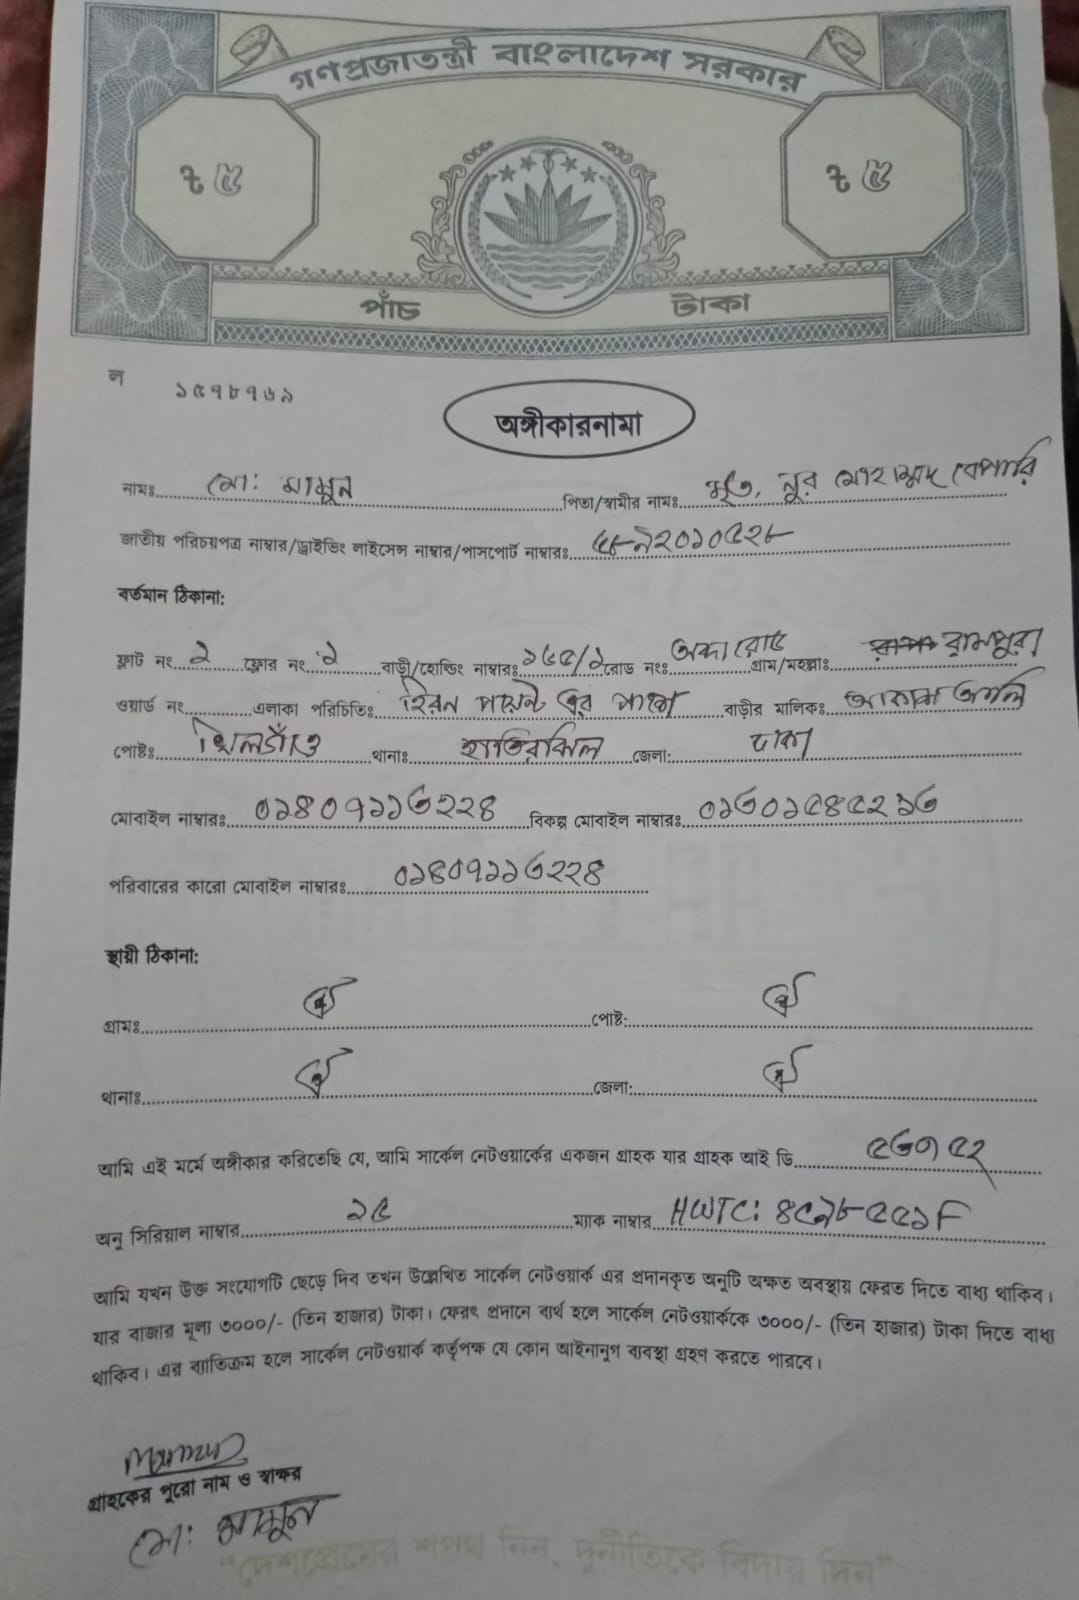 গণপ্রজাতন্ত্রী বাংলাদেশ সরকার
ট ৫ ট ৫
পাঁচ টাকা
ল ১৫৭৮৭৬৯
অঙ্গীকারনামা
নামঃ মো: মামুন পিতা/স্বামীর নামঃ মৃত, নুর মোহাম্মদ বেপারি
জাতীয় পরিচয়পত্র নাম্বার/ড্রাইভিং লাইসেন্স নাম্বার/পাসপোর্ট নাম্বারঃ
বর্তমান ঠিকানা:
ফ্লাট নং ২ ফ্লোর নং ২ বাড়ী/হোল্ডিং নাম্বারঃ ১৫৫/১ রোড নং গ্রাম/মহল্লাঃ রামপুরা
ওয়ার্ড নং এলাকা পরিচিতিঃ হিরন পয়েন্ট এর পাশে বাড়ীর মালিকঃ
পোষ্টঃ খিলগাঁও থানাঃ হাতিরঝিল জেলা: ঢাকা
মোবাইল নাম্বারঃ ০১৪০৭১১৩২২৪ বিকল্প মোবাইল নাম্বারঃ ০১৩০১৫৪৫২১৩
পরিবারের কারো মোবাইল নাম্বারঃ ০১৪০৭১১৩২২৪
স্থায়ী ঠিকানা:
গ্রামঃ ঐ পোষ্ট: ঐ
থানাঃ ঐ জেলা: ঐ
আমি এই মর্মে অঙ্গীকার করিতেছি যে, আমি সার্কেল নেটওয়ার্কের একজন গ্রাহক যার গ্রাহক আই ডি
অনু সিরিয়াল নাম্বার ১৫ ম্যাক নাম্বার HWTC:
আমি যখন উক্ত সংযোগটি ছেড়ে দিব তখন উল্লেখিত সার্কেল নেটওয়ার্ক এর প্রদানকৃত অনুটি অক্ষত অবস্থায় ফেরত দিতে বাধ্য থাকিব।
যার বাজার মূল্য ৩০০০/- (তিন হাজার) টাকা। ফেরৎ প্রদানে ব্যর্থ হলে সার্কেল নেটওয়ার্ককে ৩০০০/- (তিন হাজার) টাকা দিতে বাধ্য
থাকিব। এর ব্যাতিক্রম হলে সার্কেল নেটওয়ার্ক কর্তৃপক্ষ যে কোন আইনানুগ ব্যবস্থা গ্রহণ করতে পারবে।
গ্রাহকের পুরো নাম ও স্বাক্ষর
মো: মামুন
"দেশপ্রেমের শপথ নিন, দুর্নীতিকে বিদায় দিন"